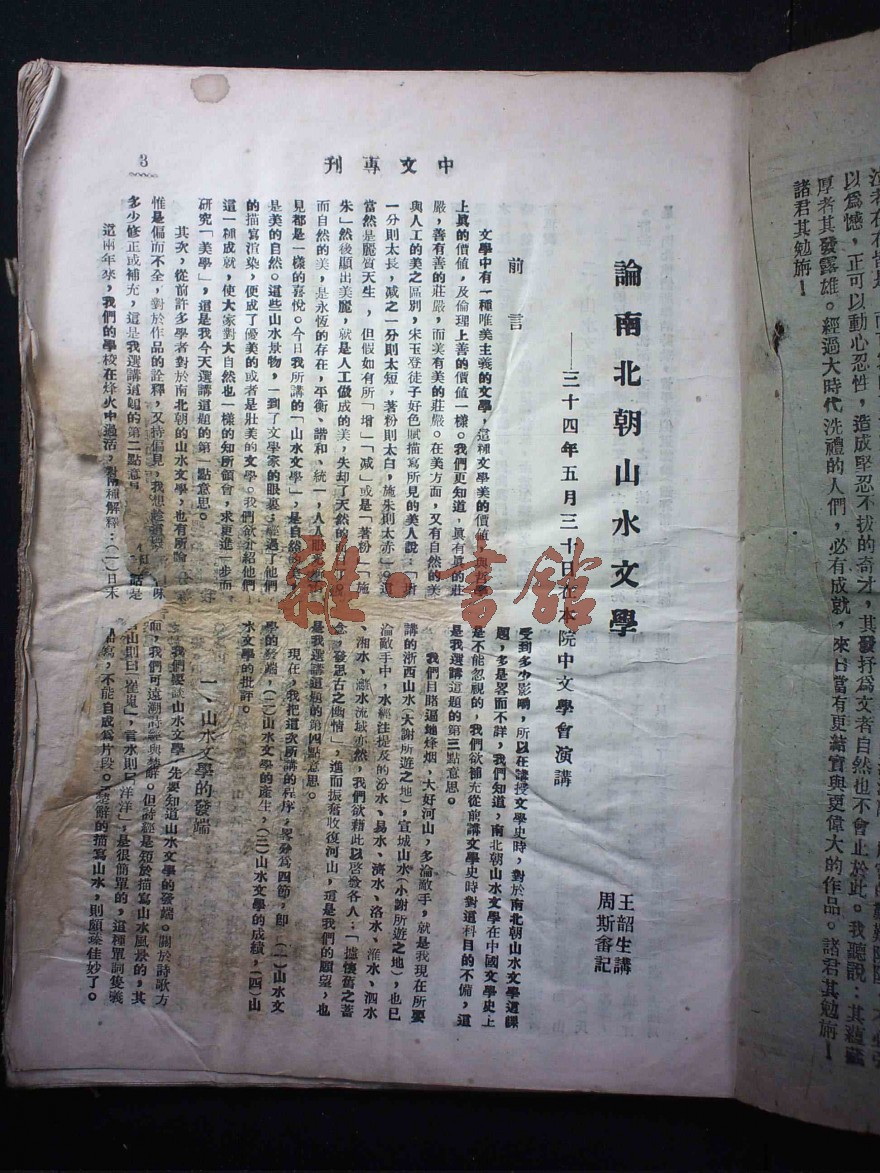 諸君其勉旃！
厚者其發露雄。經過大時代洗禮的人們，必有成就，來日當有更結實與更偉大的作品。諸君其勉旃！
以爲憾，正可以動心忍性，造成堅忍不拔的奇才，其發抒爲文者自然也不會止於此。我聽說：其蘊蓄
中文專刊
3
論南北朝山水文學
——三十四年五月三十日在本院中文學會演講
王韶生講
周斯畬記
前言
文學中有一種唯美主義的文學，這種文學美的價値，與哲學
上眞的價値，及倫理上善的價値一樣。我們更知道，眞有眞的莊
嚴，善有善的莊嚴，而美有美的莊嚴。在美方面，又有自然的美
與人工的美之區別，宋玉登徒子好色賦描寫所見的美人說：「增
一分則太長，减之一分則太短，著粉則太白，施朱則太赤」。這
當然是麗質天生，但假如有所「增」「减」或是「著粉」「施
朱」然後顯出美麗，就是人工做成的美，失却了天然的面目了。
而自然的美，是永恆的存在，平衡、諧和、統一，人人眼見
見都是一樣的喜悅。今日我所講的「山水文學」，是自然的美
是美的自然。這些山水景物，一到了文學家的眼裏，經過了他們
的描寫渲染，便成了優美的或者是壯美的文學。我們欲介紹他們
這一種成就，使大家對大自然也一樣的知所領會，求更進一步而
研究「美學」，這是我今天選講這題的第一點意思。
其次，從前許多學者對於南北朝的山水文學，也有所論
惟是偏而不全，對於作品的詮釋，又持偏見，我想
多少修正或補充，這是我選講這題的第二點意
這兩年來，我們的學校在烽火中過活，對兩種解釋：（一）日未
受到多少影响，所以在講授文學史時，對於南北朝山水文學這課
題，多是畧而不詳，我們知道，南北朝山水文學在中國文學史上
是不能忽視的，我們欲補充從前講文學史時對這科目的不備，這
是我選講這題的第三點意思。
我們目睹遍地烽烟，大好河山，多淪敵手，就是我現在所要
講的浙西山水（大謝所遊之地），宣城山水（小謝所遊之地），也已
淪敵手中，水經注提及的汾水、易水、濟水、洛水、淮水、泗水
、湘水、灕水流域亦然，我們欲藉此以啓發各人：「攄懷舊之蓄
念，發思古之幽情」，進而振奮收復河山，這是我們的願望，也
是我選講這題的第四點意思。
現在，我把這次所講的程序，畧分爲四節，卽（一）山水文
學的發端，（二）山水文學的產生，（三）山水文學的成績，（四）山
水文學的批評。
一、山水文學的發端
我們要談山水文學，先要知道山水文學的發端。關於詩歌方
面，我們可遠溯詩經與楚辭。但詩經是短於描寫山水風景的，其
言山則曰「崔嵬」，言水則曰「洋洋」，是很簡單的，這種單詞隻義
的描寫，不能自成爲片段。楚辭的描寫山水，則頗臻佳妙了。
雜·書館